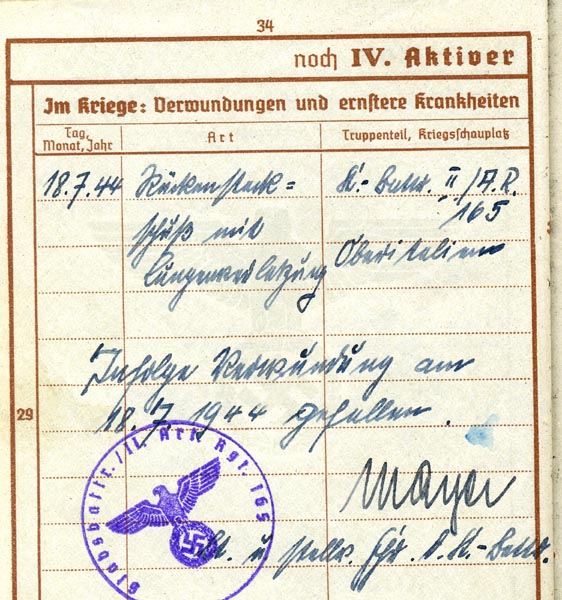 34
noch IV. Aktiver
Im Kriege: Verwundungen und ernstere Krankheiten
Tag, Monat, Jahr
Art
Truppenteil, Kriegsschauplatz
18.7.44
Rückensteck=
schuß mit
Lungenverletzung
St.-Battr. II/A.R.
165
Oberitalien
Infolge Verwundung am
29
18.7.1944 gefallen.
Mayer
Lt. u. stellv. Fhr. d. St.-Battr.
Stabsbattr./II. Art. Rgt. 165